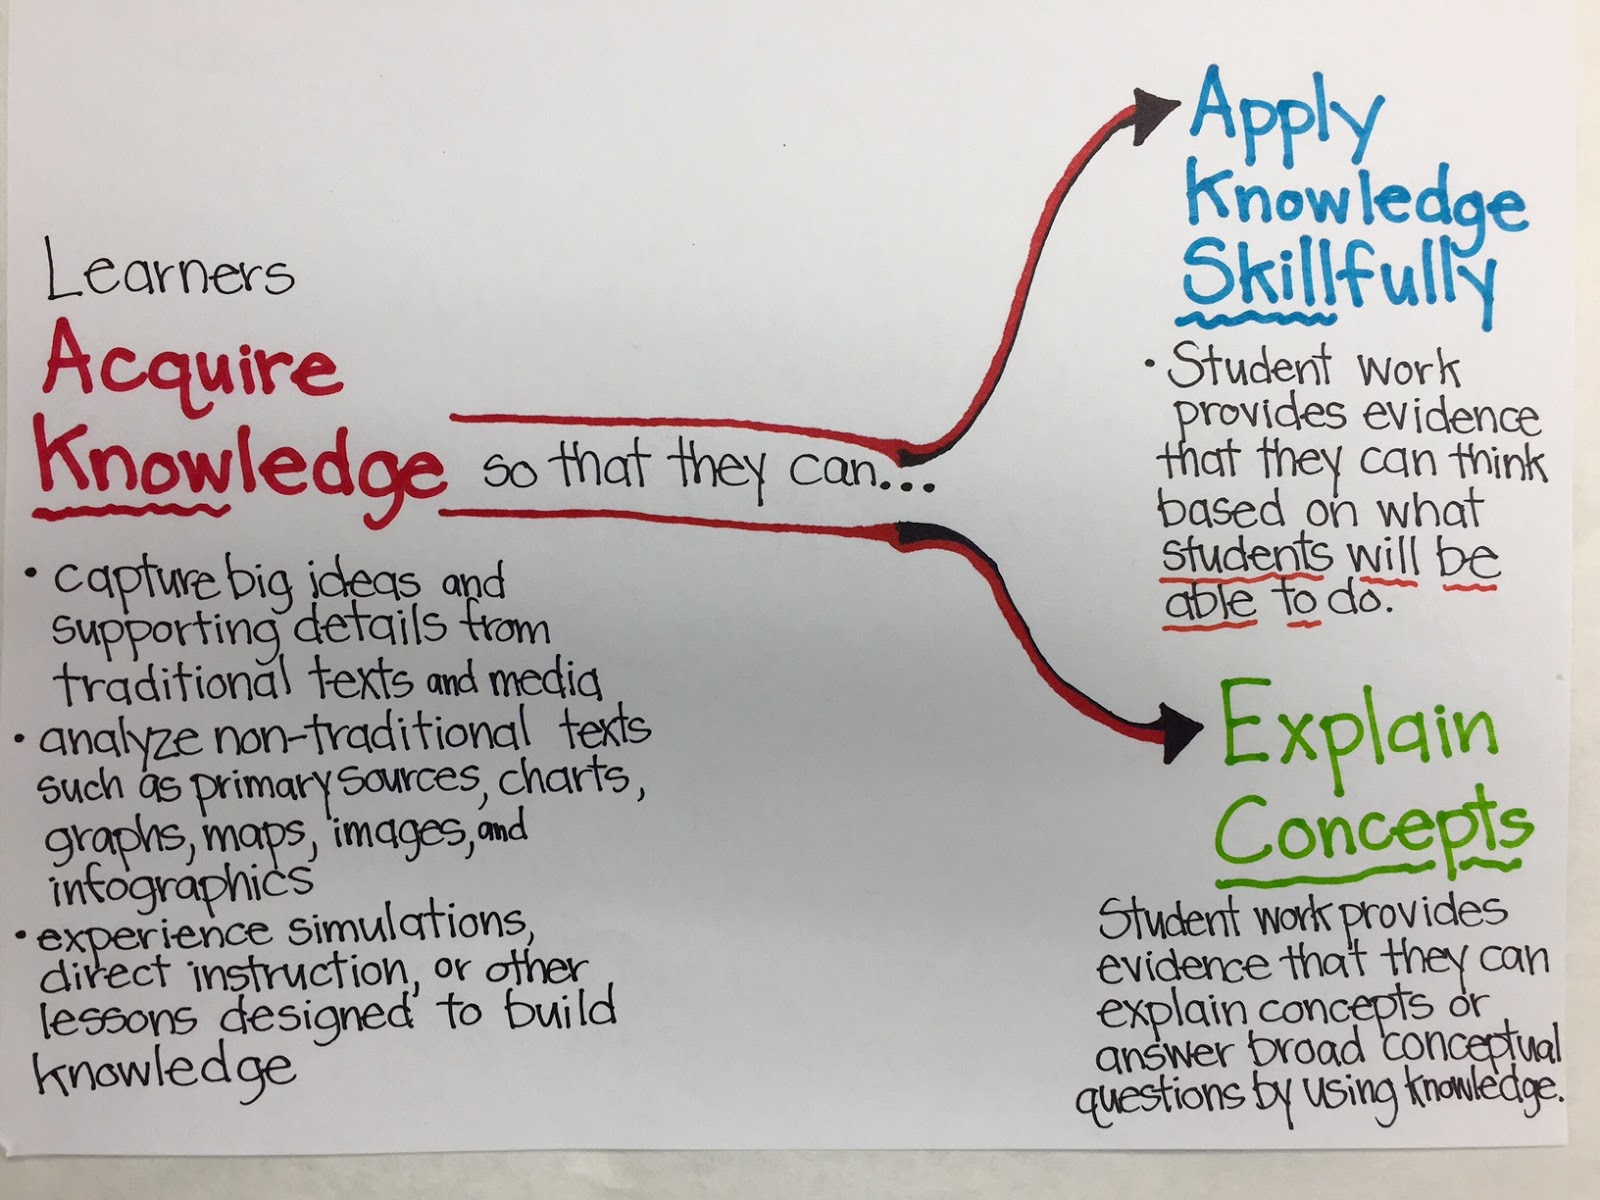 Learners
Acquire
Knowledge
so that they can...
• capture big ideas and
supporting details from
traditional texts and media
• analyze non-traditional texts
such as primary sources, charts,
graphs, maps, images, and
infographics
• experience simulations,
direct instruction, or other
lessons designed to build
knowledge
Apply
Knowledge
Skillfully
• Student work
provides evidence
that they can think
based on what
students will be
able to do.
Explain
Concepts
Student work provides
evidence that they can
explain concepts or
answer broad conceptual
questions by using knowledge.